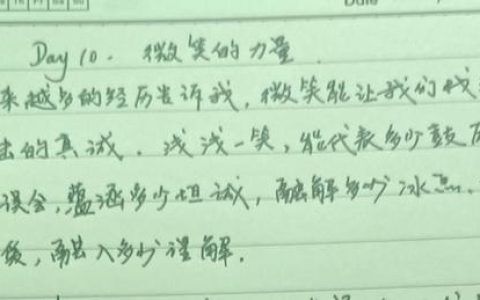 Day 10. 微笑的力量.
来越多的经历告诉我,微笑能让我们
出的真诚.浅浅一笑,能代表多少鼓
误会,蕴涵多少坦诚,融解多少冰点.
,融入多少谅解.